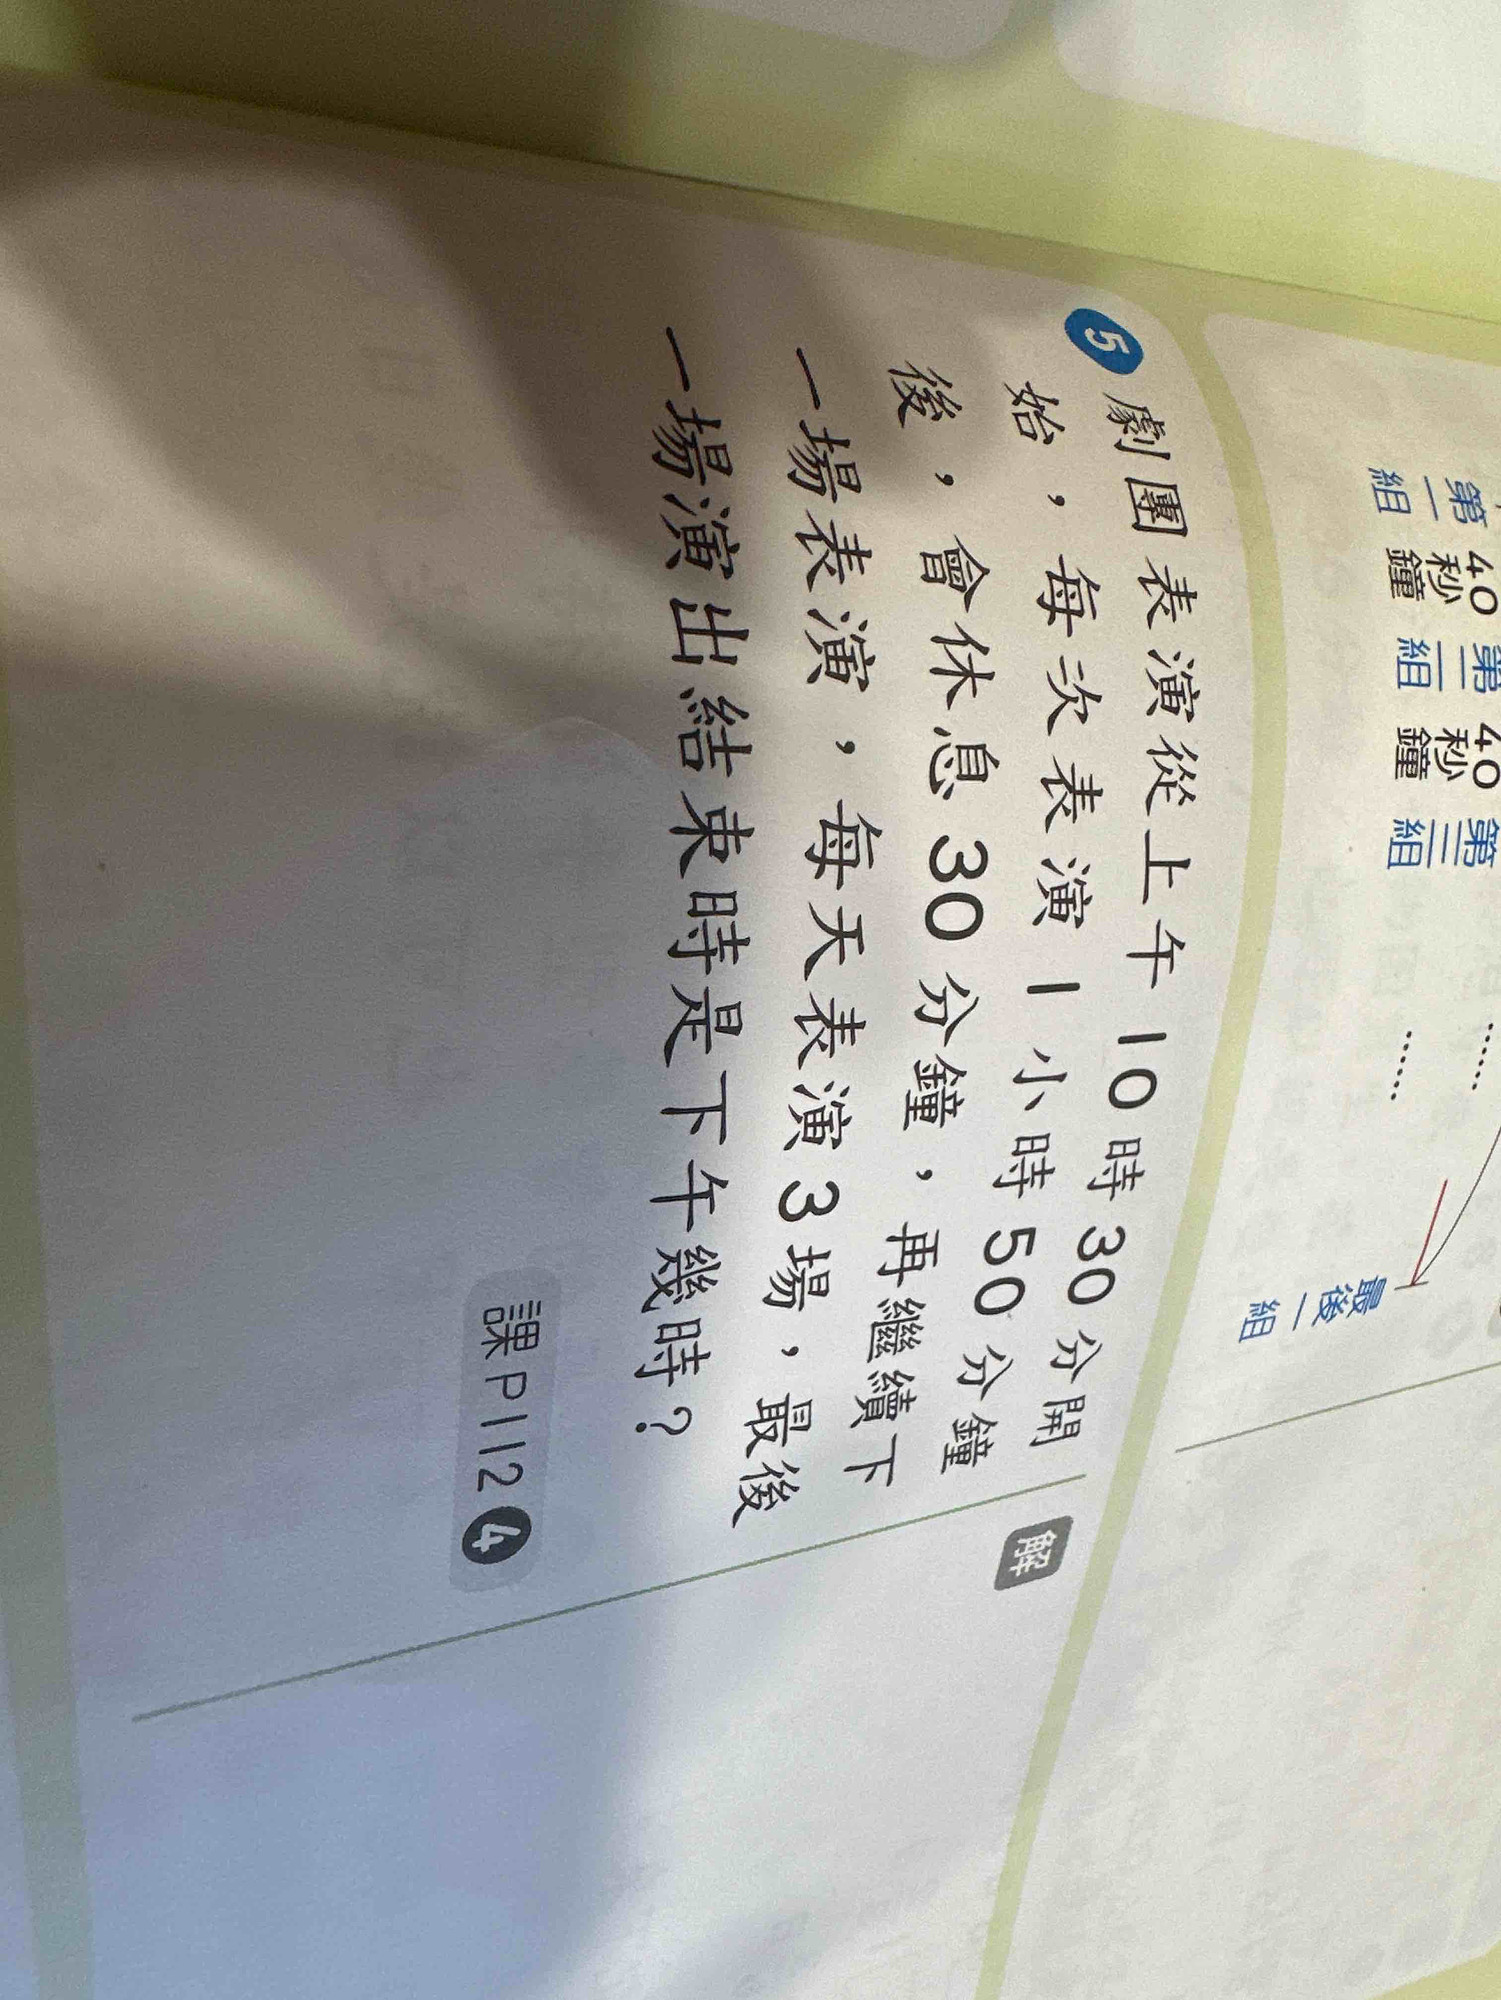 第一組 40秒鐘 第二組 40秒鐘 第三組 …… ……
最後一組
5 劇團表演從上午10時30分開
始，每次表演1小時50分鐘
後，會休息30分鐘，再繼續下
一場表演，每天表演3場，最後
一場演出結束時是下午幾時？
課P112 4
解